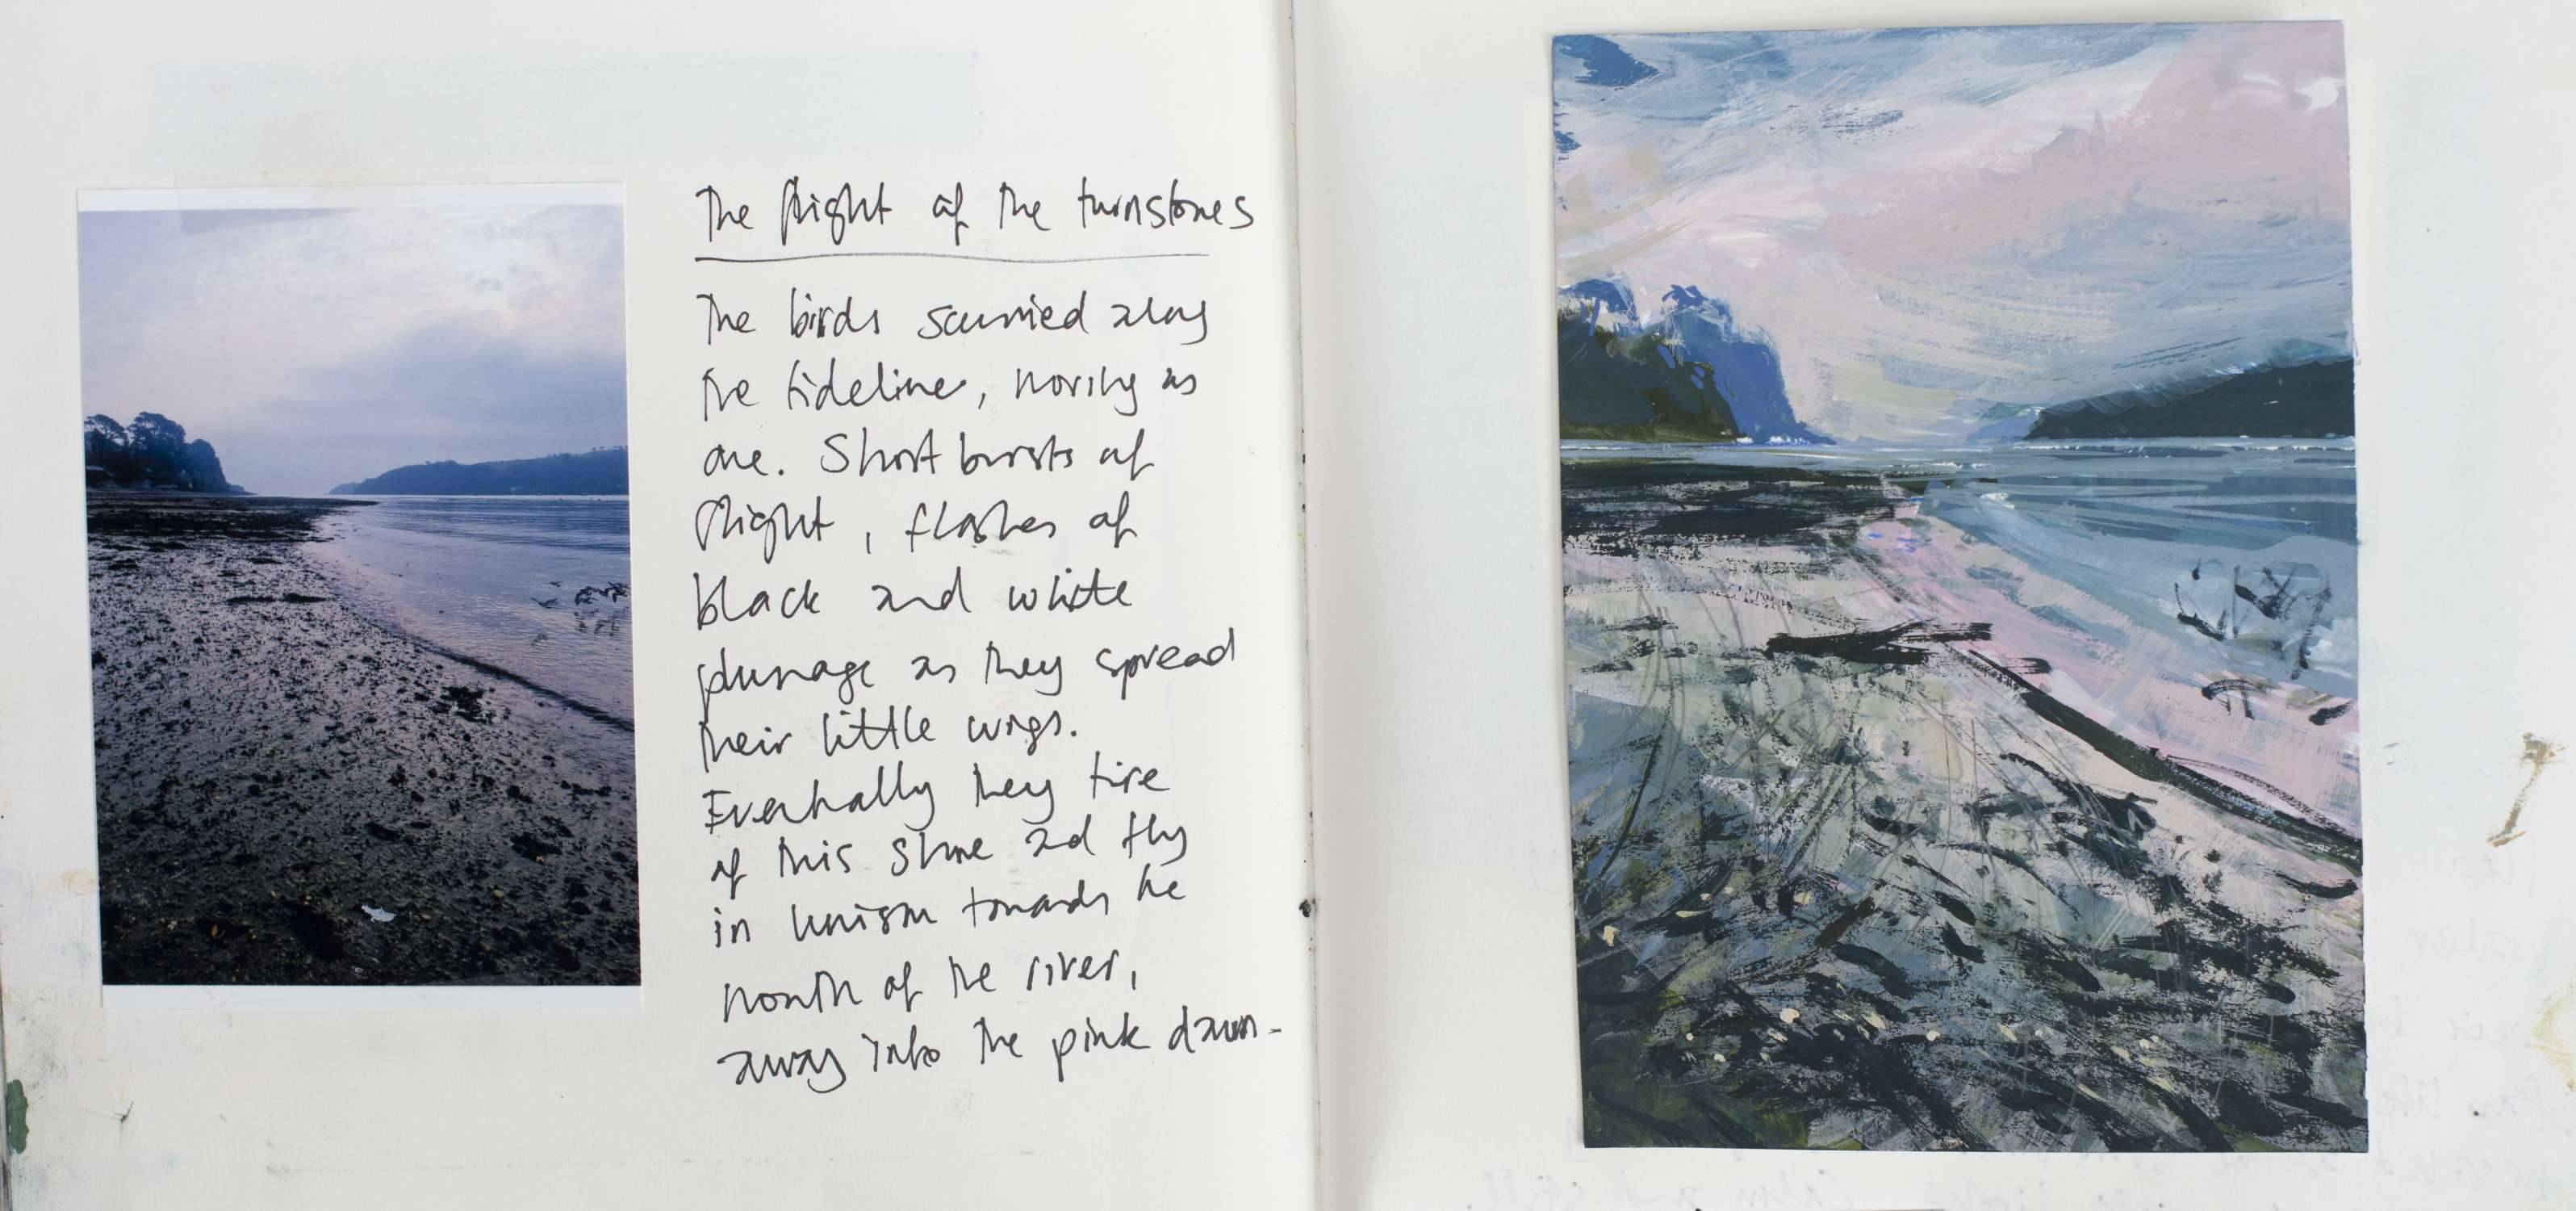 The flight of the turnstones
The birds scurried along
the tideline, moving as
one. Short bursts of
flight, flashes of
black and white
plumage as they spread
their little wings.
Eventually they tire
of this shore and fly
in unison towards the
mouth of the river,
away into the pink dawn-